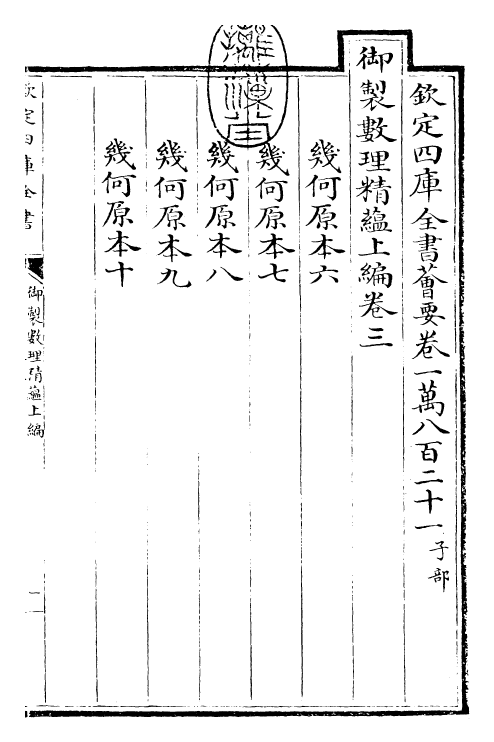 欽定四庫全書薈要卷一萬八百二十一子部
御製數理精藴上編卷三
幾何原本六
幾何原本七
幾何原本八
幾何原本九
幾何原本十
欽定四庫全書
御製數理精藴上編
一